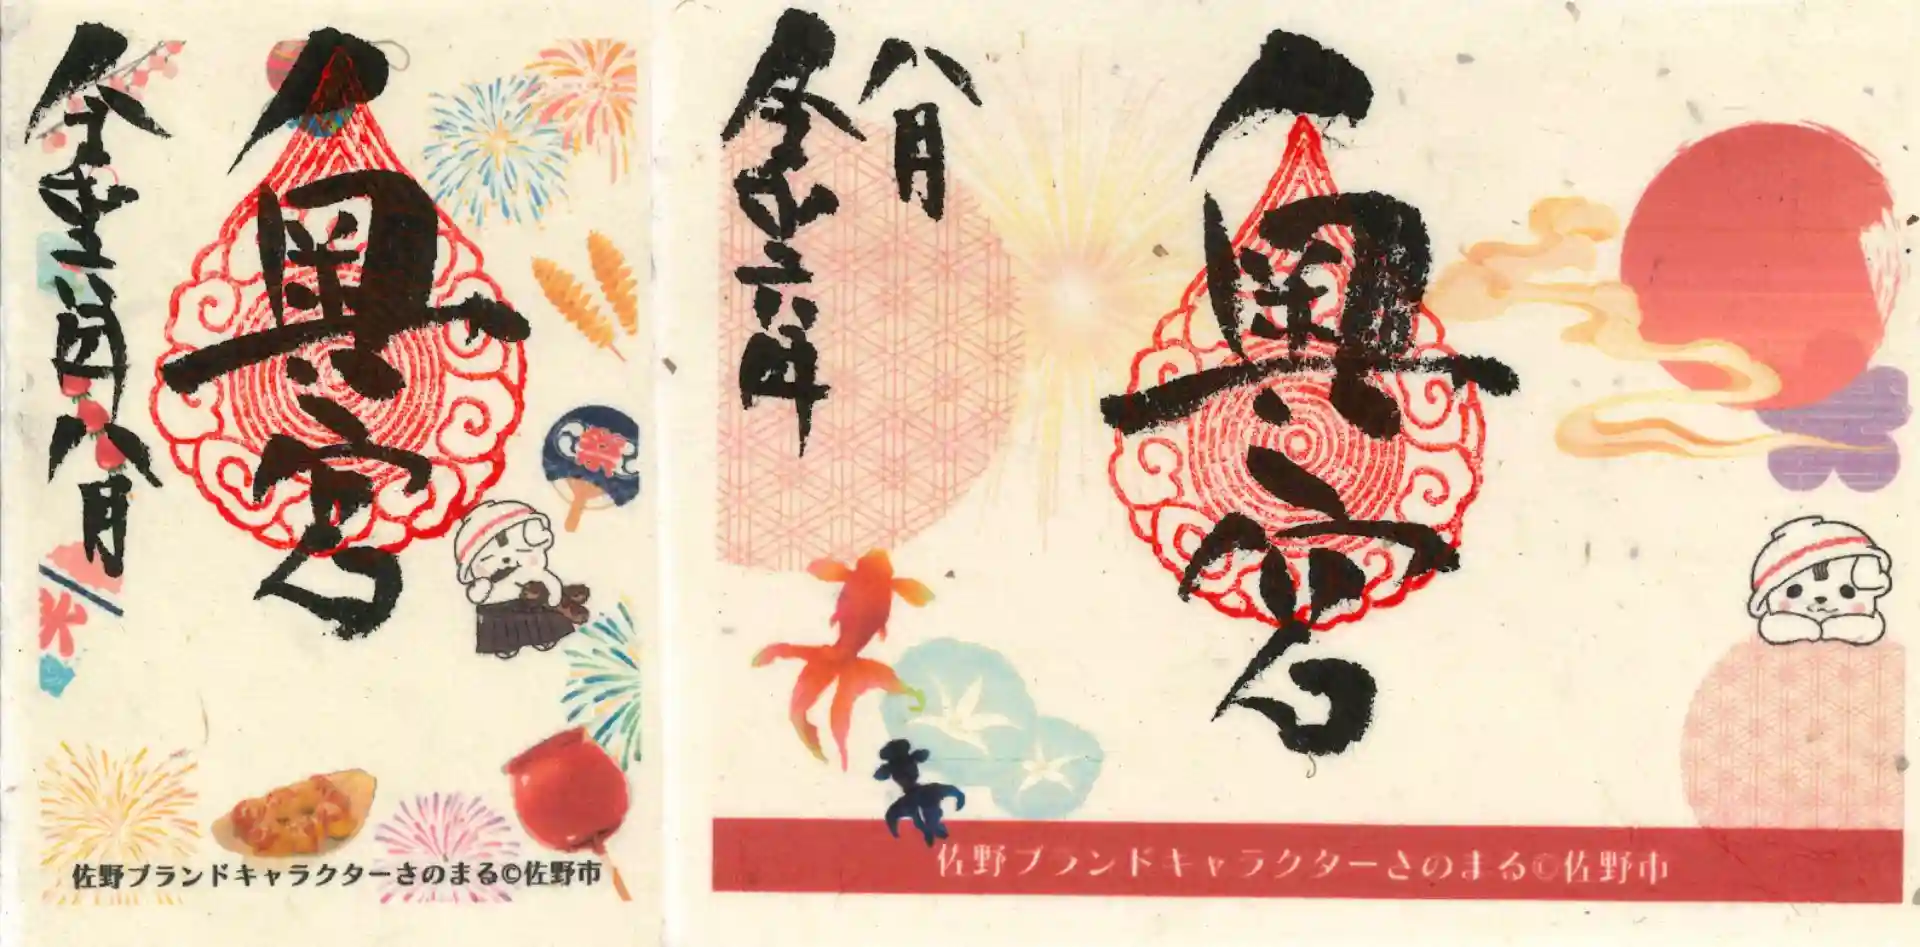 奥宮
令和六年八月
祭
佐野ブランドキャラクターさのまる©佐野市
奥宮
令和六年
八月
佐野ブランドキャラクターさのまる©佐野市